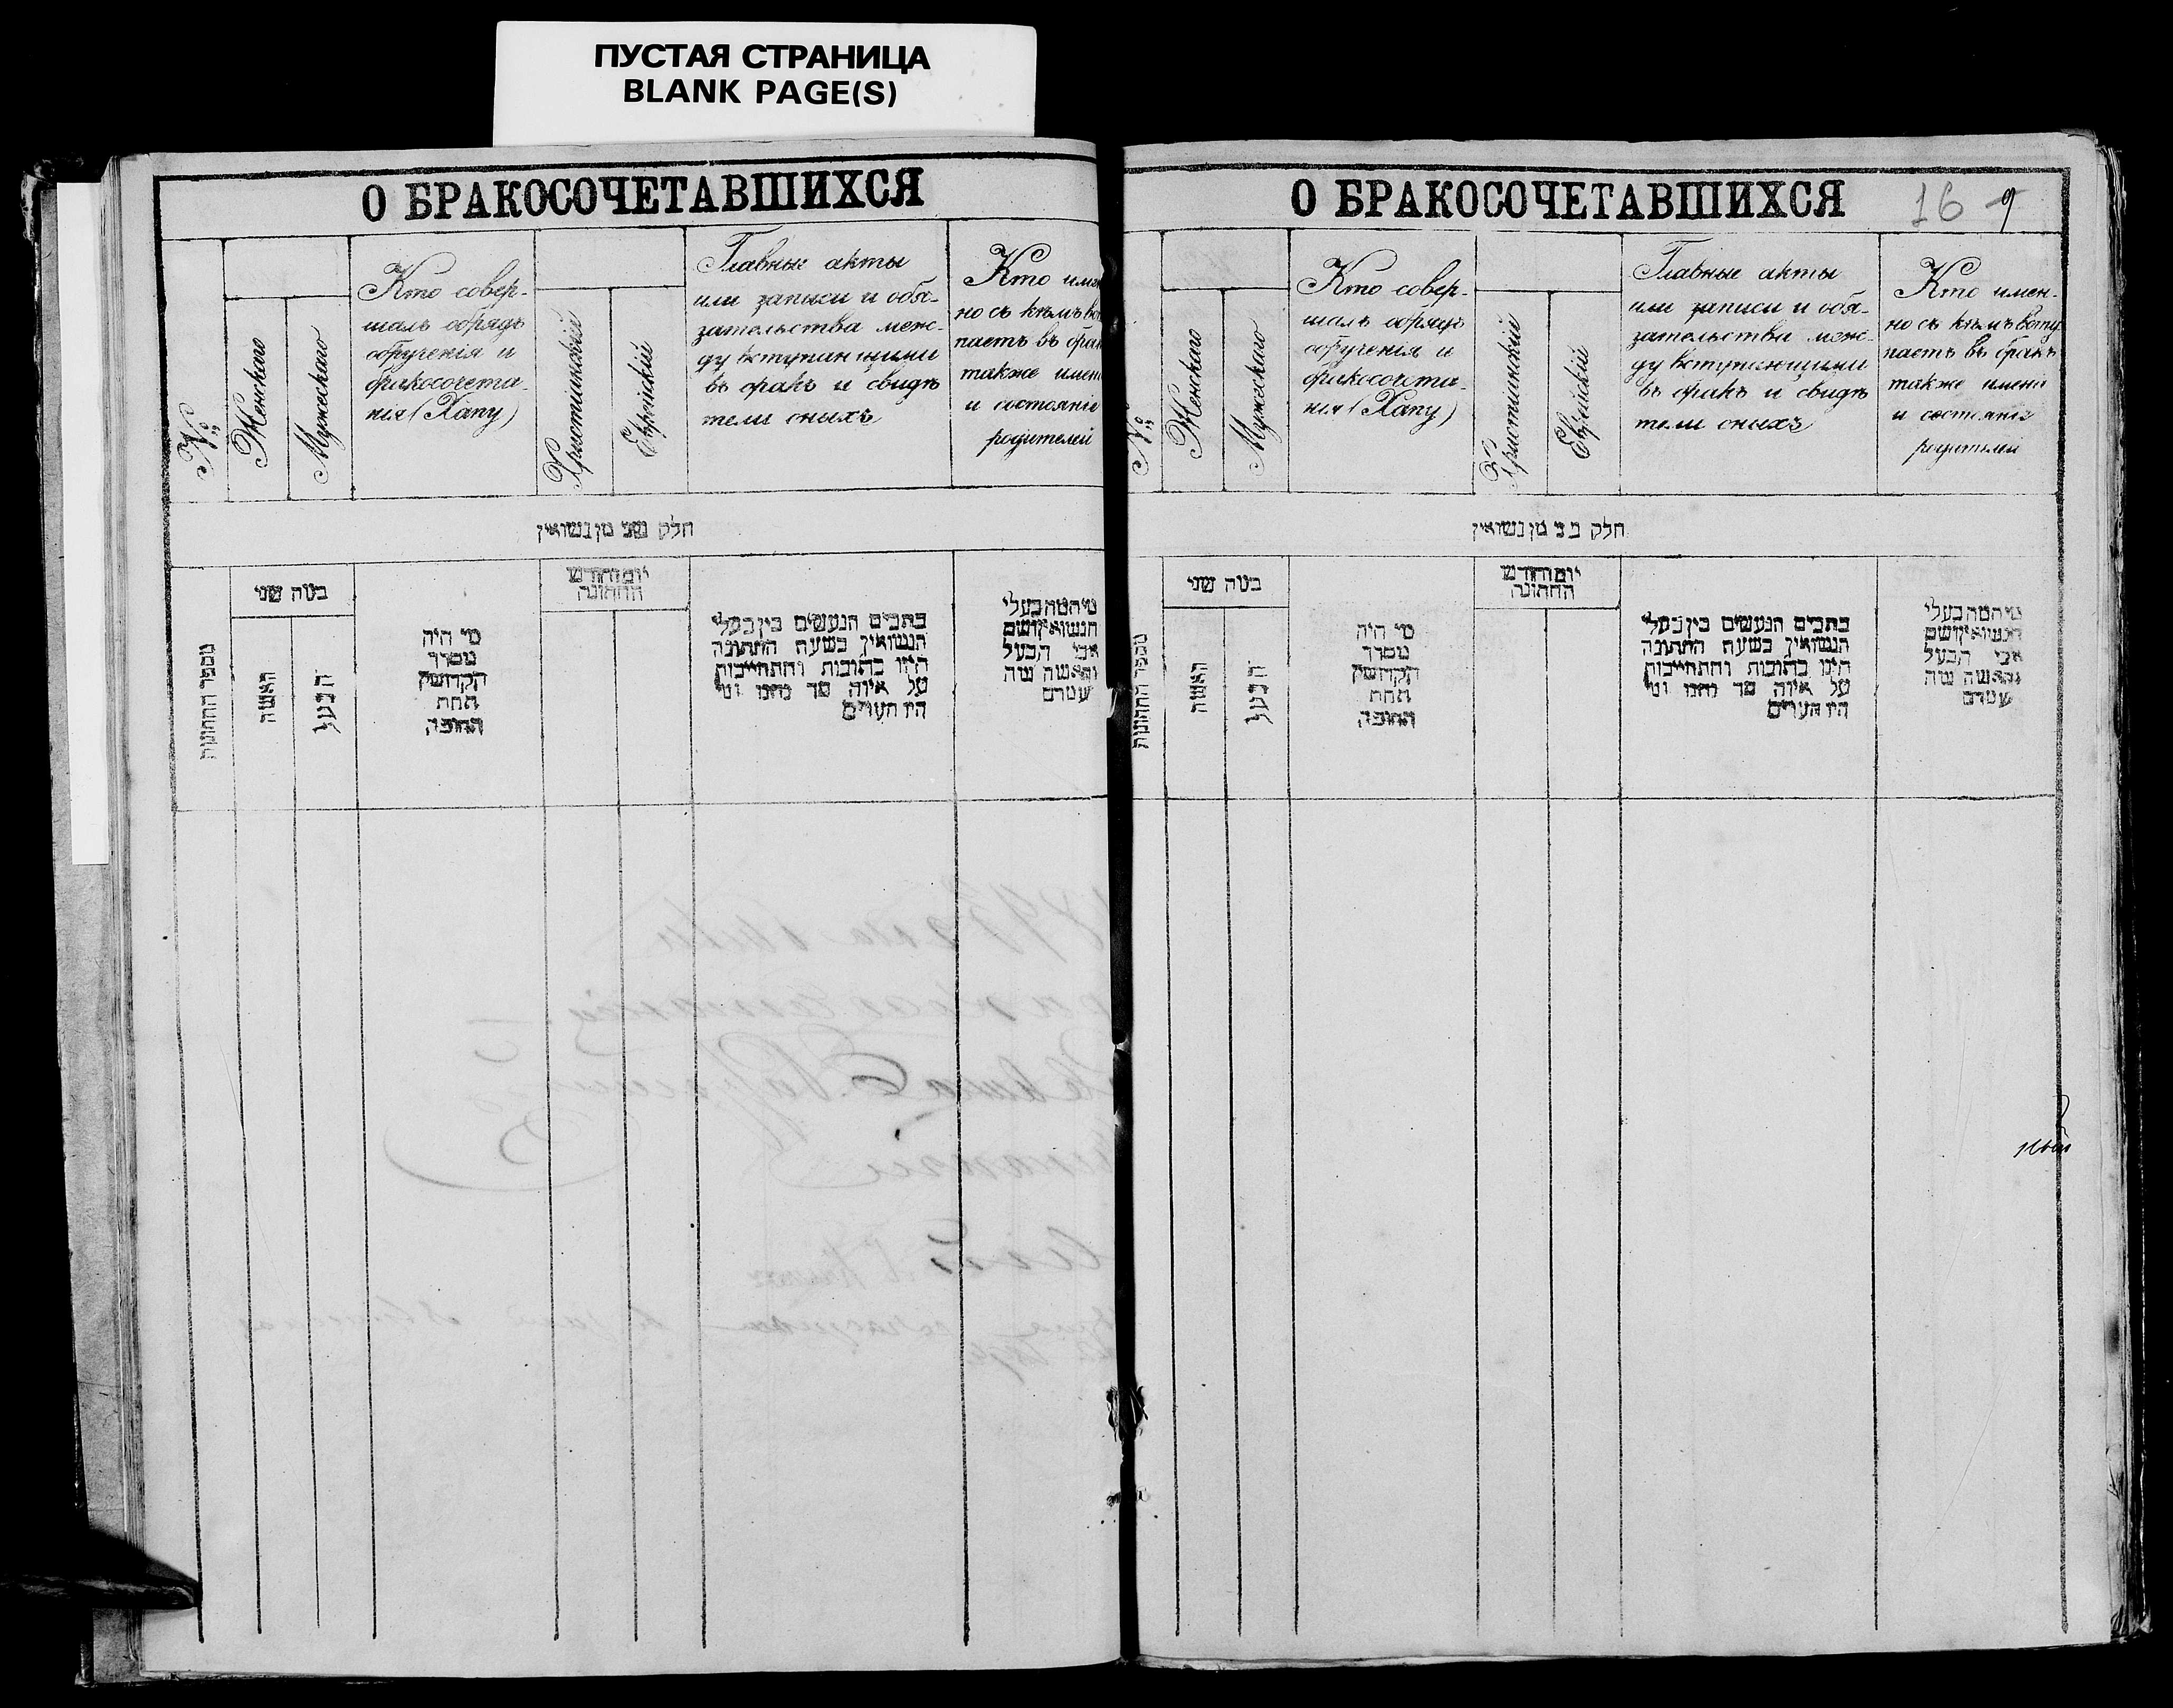 ПУСТАЯ СТРАНИЦА
BLANK PAGE(S)
О БРАКОСОЧЕТАВШИХСЯ
№
Женскаго
Мужескаго
Кто совер-
шалъ обрядъ
обрученія и
бракосочета-
нія (Хапу)
Христіанскій
Еврейскій
Главные акты
или записи и обя-
зательства меж-
ду вступающими
въ бракъ и свидѣ
тели оныхъ
Кто имен
но съ кѣмъ
паетъ въ
также
и состояніе
родителей
חלק שני מן נשואין
מספר החתונות
כמה שני
האשה
הבעל
מי היה
מסדר
הקדושין
תחת
החופה
יום וחודש
החתונה
כתבים הנעשים בין בעלי
הנשואין בשעת החתונה
היינו כתובות והתחייבות
על איזה סך נתנו ומי
היו העדים
מי המה בעלי
הנשואין ושם
אבי הבעל
והאשה
О БРАКОСОЧЕТАВШИХСЯ
16 9
№
Женскаго
Мужескаго
Кто совер-
шалъ обрядъ
обрученія и
бракосочета-
нія (Хапу)
Христіанскій
Еврейскій
Главные акты
или записи и обя-
зательства меж-
ду вступающими
въ бракъ и свидѣ
тели оныхъ
Кто имен-
но съ кѣмъ всту
паетъ въ бракъ
также имена
и состояніе
родителей
חלק שני מן נשואין
מספר החתונות
כמה שני
האשה
הבעל
מי היה
מסדר
הקדושין
תחת
החופה
יום וחודש
החתונה
כתבים הנעשים בין בעלי
הנשואין בשעת החתונה
היינו כתובות והתחייבות
על איזה סך נתנו ומי
היו העדים
מי המה בעלי
הנשואין ושם
אבי הבעל
והאשה